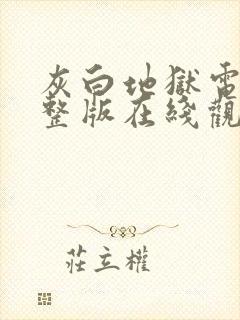 灰白地獄電
整版在綫觀
莊立權